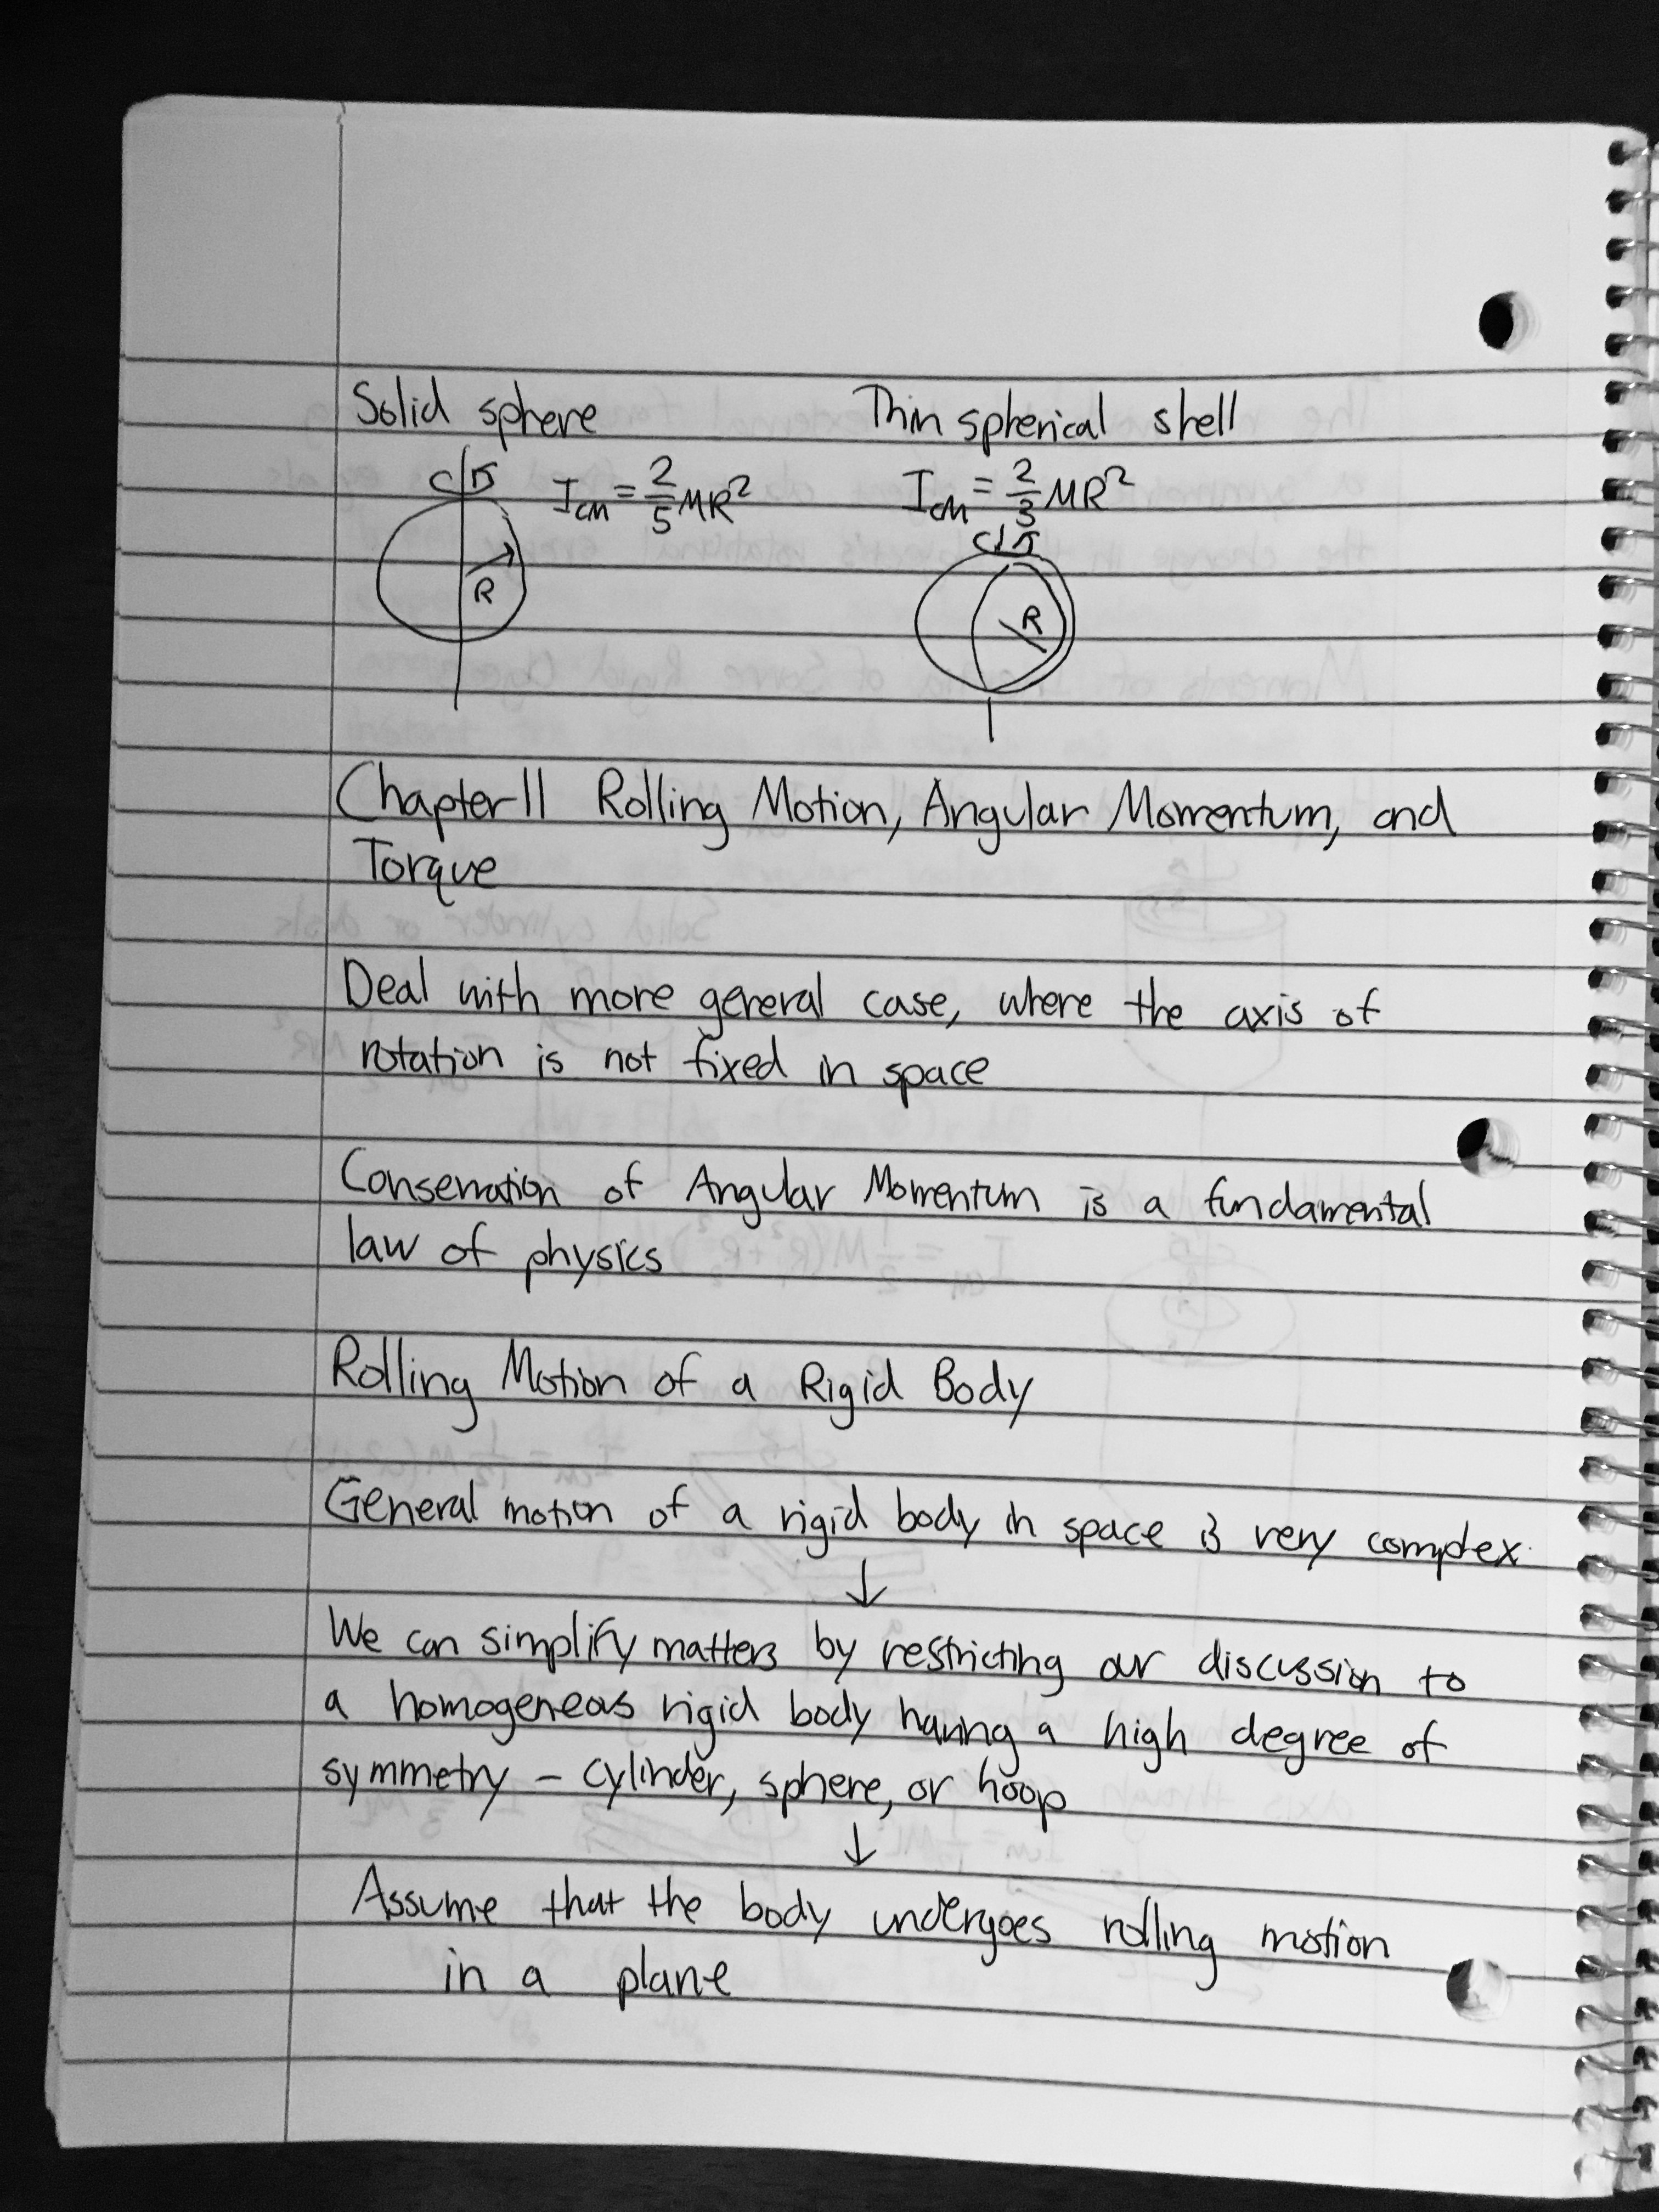 Solid sphere    Thin spherical shell
I_CM = 2/5 MR²    I_CM = 2/3 MR²
R    R
Chapter 11 Rolling Motion, Angular Momentum, and
Torque
Deal with more general case, where the axis of
rotation is not fixed in space
Conservation of Angular Momentum is a fundamental
law of physics
Rolling Motion of a Rigid Body
General motion of a rigid body in space is very complex.
↓
We can simplify matters by restricting our discussion to
a homogeneous rigid body having a high degree of
symmetry – cylinder, sphere, or hoop
↓
Assume that the body undergoes rolling motion
in a plane